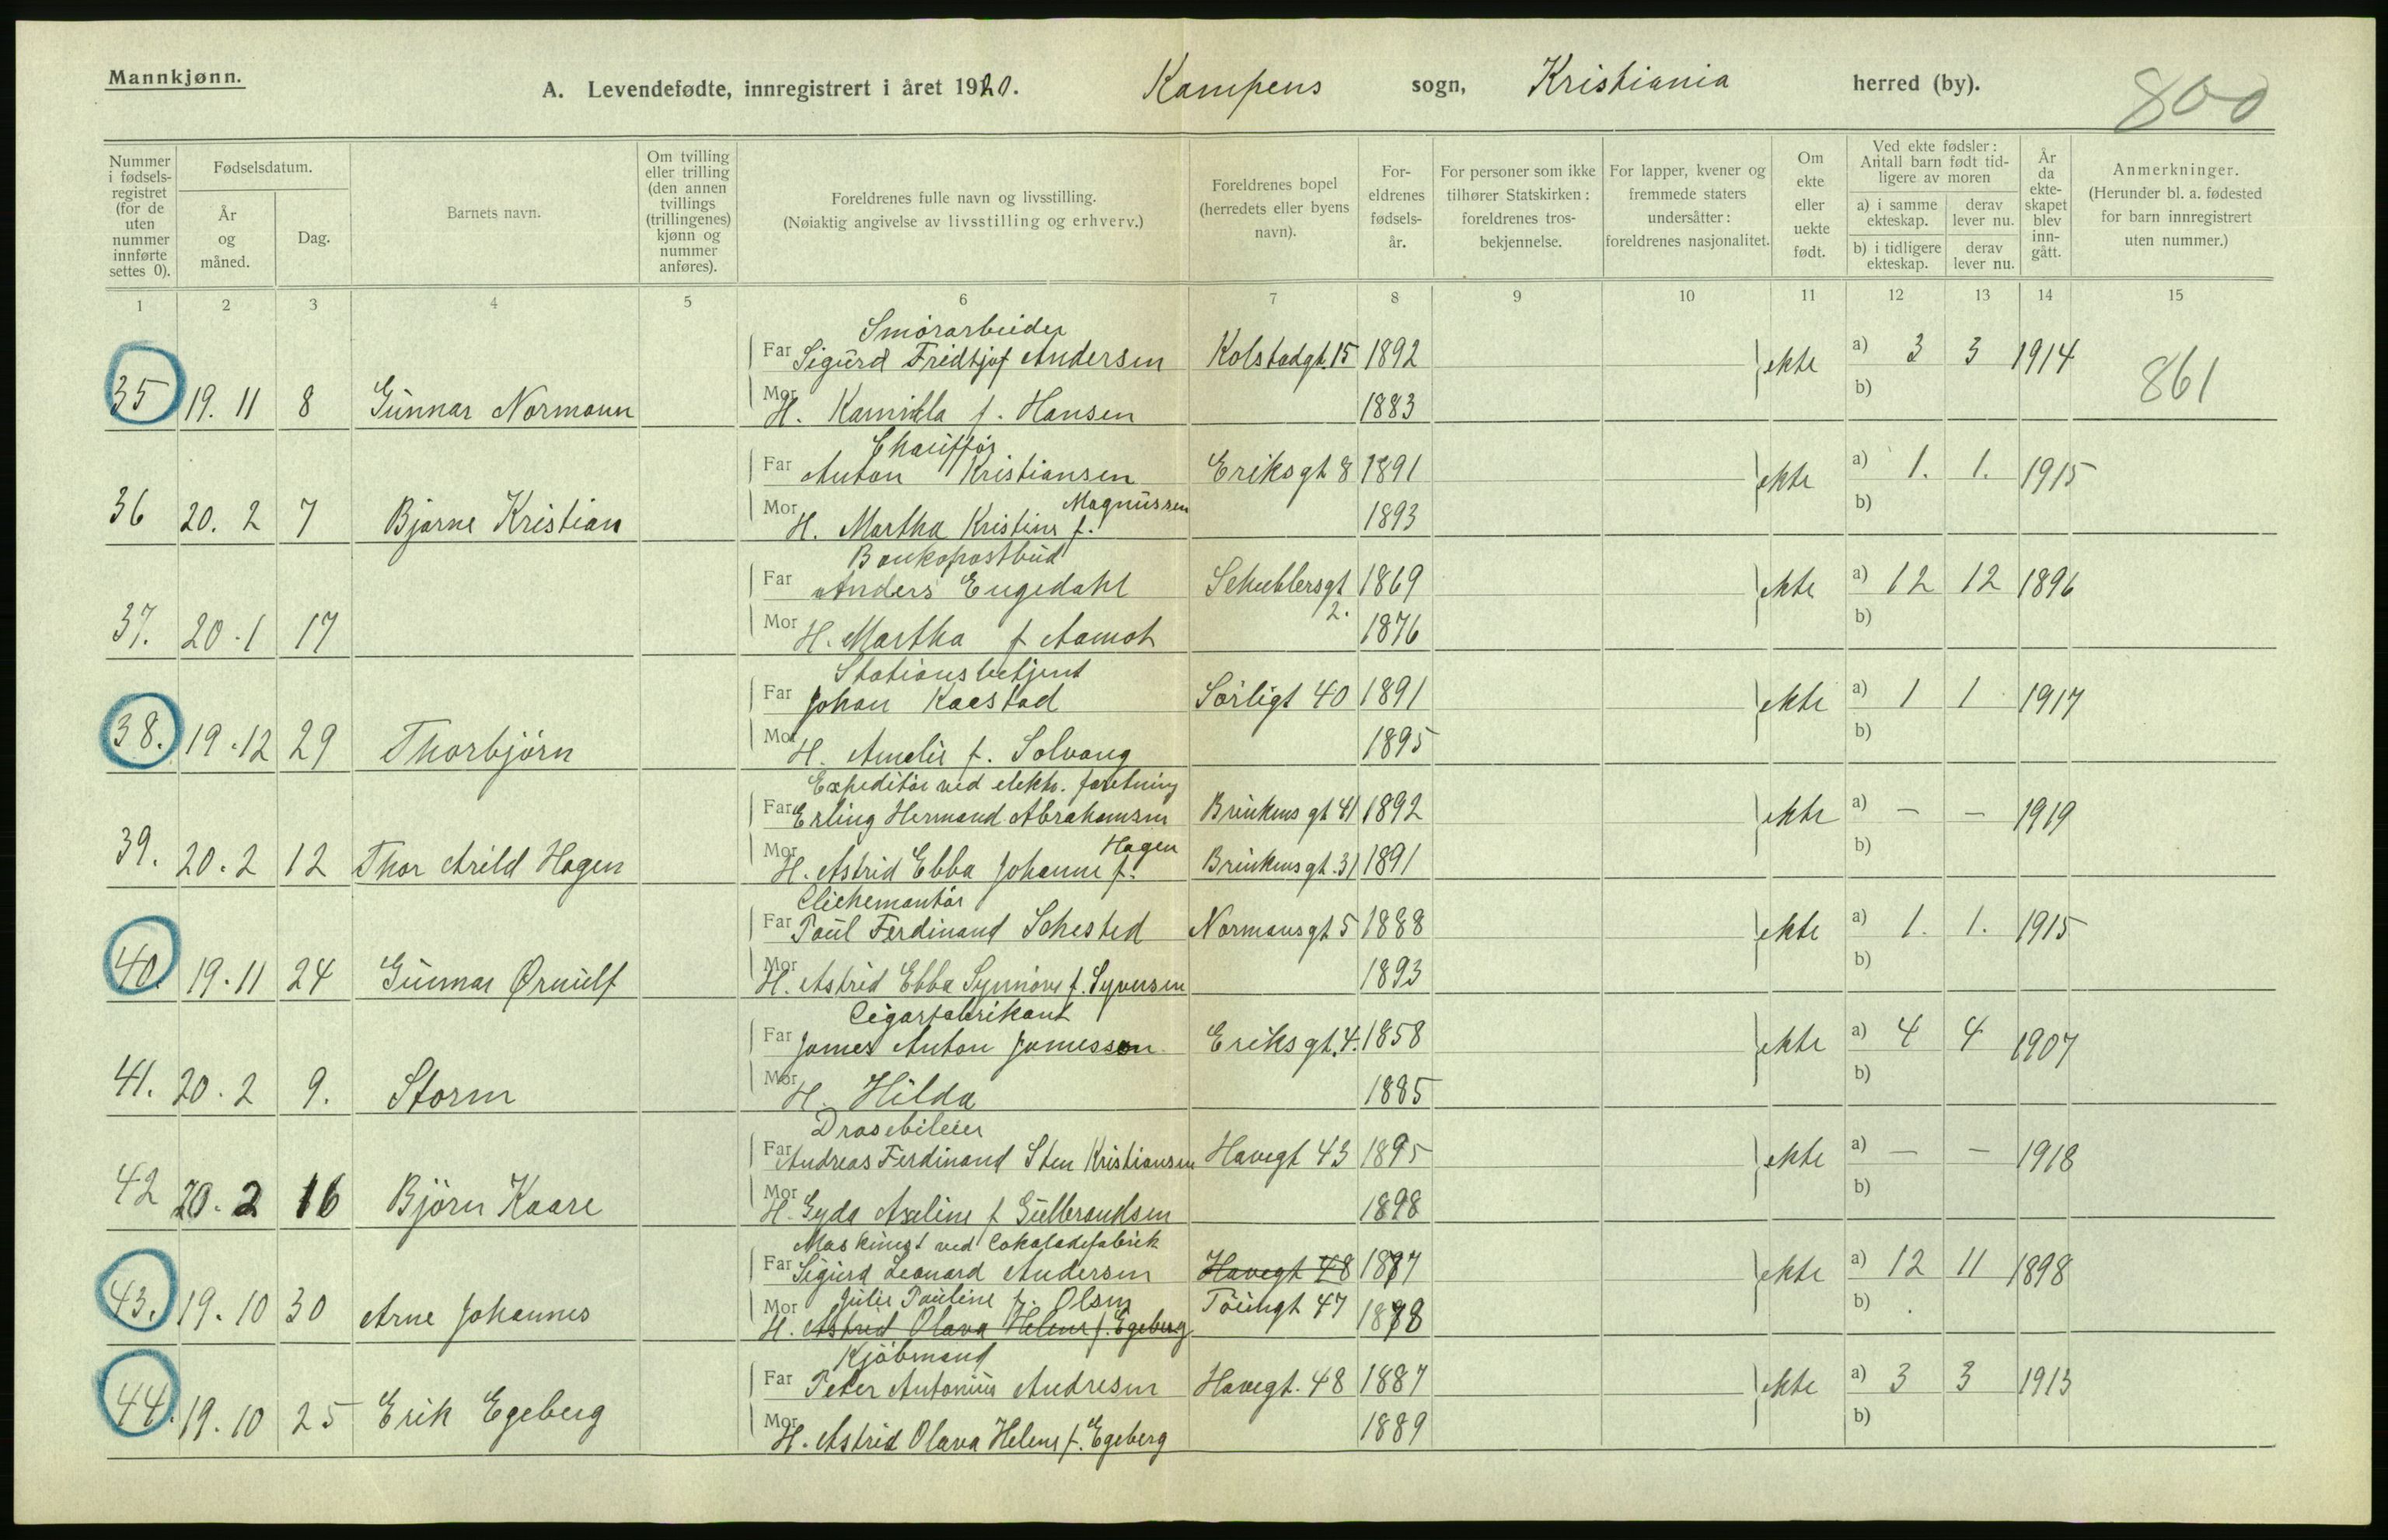 Mannkjønn.
A. Levendefødte, innregistrert i året 1920. Kampens sogn, Kristiania herred (by). 800
Nummer i fødsels-registret (for de uten nummer innførte settes 0).
Fødselsdatum.
År og måned.
Dag.
Barnets navn.
Om tvilling eller trilling (den annen tvillings (trillingenes) kjønn og nummer anføres).
Foreldrenes fulle navn og livsstilling.
(Nøiaktig angivelse av livsstilling og erhverv.)
Foreldrenes bopel (herredets eller byens navn).
For-eldrenes fødsels-år.
For personer som ikke tilhører Statskirken: foreldrenes tros-bekjennelse.
For lapper, kvener og fremmede staters undersåtter: foreldrenes nasjonalitet.
Om ekte eller uekte født.
Ved ekte fødsler: Antall barn født tid-ligere av moren
a) i samme ekteskap. derav lever nu.
b) i tidligere ekteskap. derav lever nu.
År da ekte-skapet blev inn-gått.
Anmerkninger.
(Herunder bl. a. fødested for barn innregistrert uten nummer.)
1 2 3 4 5 6 7 8 9 10 11 12 13 14 15
Smørarbeider
Far Sigurd Fridtjof Andersen Kolstadgt. 15 1892 ekte a) 3 3 1914
35 19. 11 8 Gunnar Normann Mor H. Kamilla f. Hansen 1883 b) 861
Chauffør
Far Anton Kristiansen Eriksgt 8 1891 ekte a) 1. 1. 1915
Magnussen
36 20. 2 7 Bjarne Kristian Mor H. Martha Kristine f. 1893 b)
Bankopostbud
Far Anders Engedahl Schublersgt 1869 ekte a) 12 12 1896
2.
37. 20. 1 17 Mor H. Martha f Aamot 1876 b)
Stationsbetjent
Far Johan Kaestad Sørligt 40 1891 ekte a) 1 1 1917
38. 19. 12 29 Thorbjørn Mor H. Amelie f. Solvang 1895 b)
Expeditør ved elektr. foretning
Far Erling Hermand Abrahamsen Brinkens gt 41 1892 ekte a) - - 1919
Hagen
39. 20. 2 12 Thor Arild Hagen Mor H. Astrid Ebba Johanne f. Brinkensgt. 31 1891 b)
Clichemontør
Far Paul Ferdinand Schested Normansgt 5 1888 ekte a) 1. 1. 1915
40. 19. 11 24 Gunnar Ørnulf Mor H. Astrid Ebba Synnøve f. Syversen 1893 b)
Cigarfabrikant
Far James Anton Jamesson Eriksgt. 4. 1858 ekte a) 4 4 1907
41. 20. 2 9. Storm Mor H. Hilda 1885 b)
Drosebileier
Far Andreas Ferdinand Sten Kristiansen Havegt 43 1895 ekte a) - - 1918
42 20. 2 16 Bjørn Kaare Mor H. Gyda Axeline f Gulbrandsen 1898 b)
Maskinist ved Cokoladefabrik
Far Sigurd Leonard Andersen Havegt 48 1877 ekte a) 12 11 1898
Julie Pauline f. Olsen Tøiengt 47
43. 19. 10 30 Arne Johannes Mor H. Astrid Olava Helene f. Egeberg 1878 b)
Kjøbmand
Far Peter Antonius Andresen Havegt. 48 1887 ekte a) 3 3 1913
44. 19. 10 25 Erik Egeberg Mor H. Astrid Olava Helene f. Egeberg 1889 b)